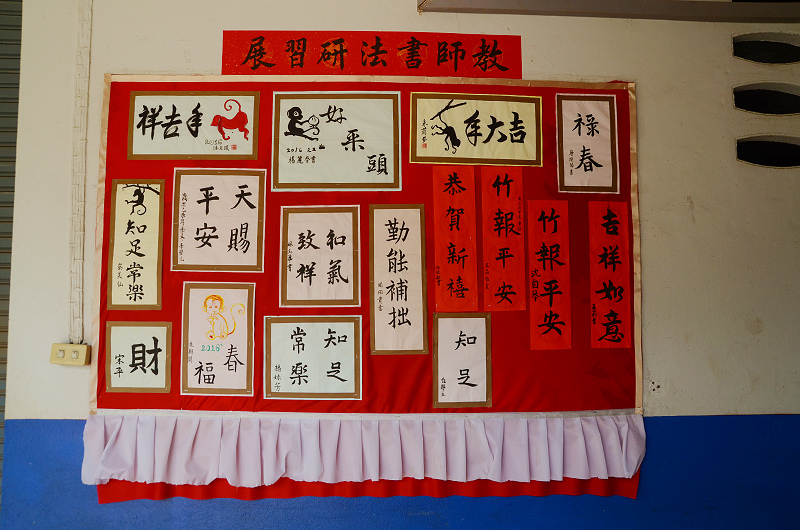 教師書法研習展
年吉祥
好采頭
年大吉
禄春
知足常樂
天賜
平安
和氣
致祥
勤能補拙
恭賀新禧
竹報平安
竹報平安
吉祥如意
財
宋平
2016
春
福
知足
常樂
知足